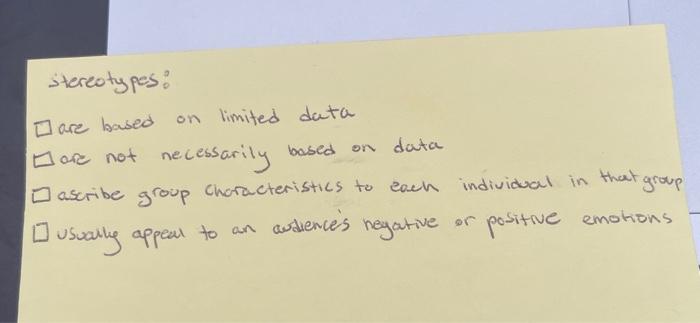 stereotypes:
□ are based on limited data
□ are not necessarily based on data
□ ascribe group characteristics to each individual in that group
□ usually appeal to an audience's negative or positive emotions